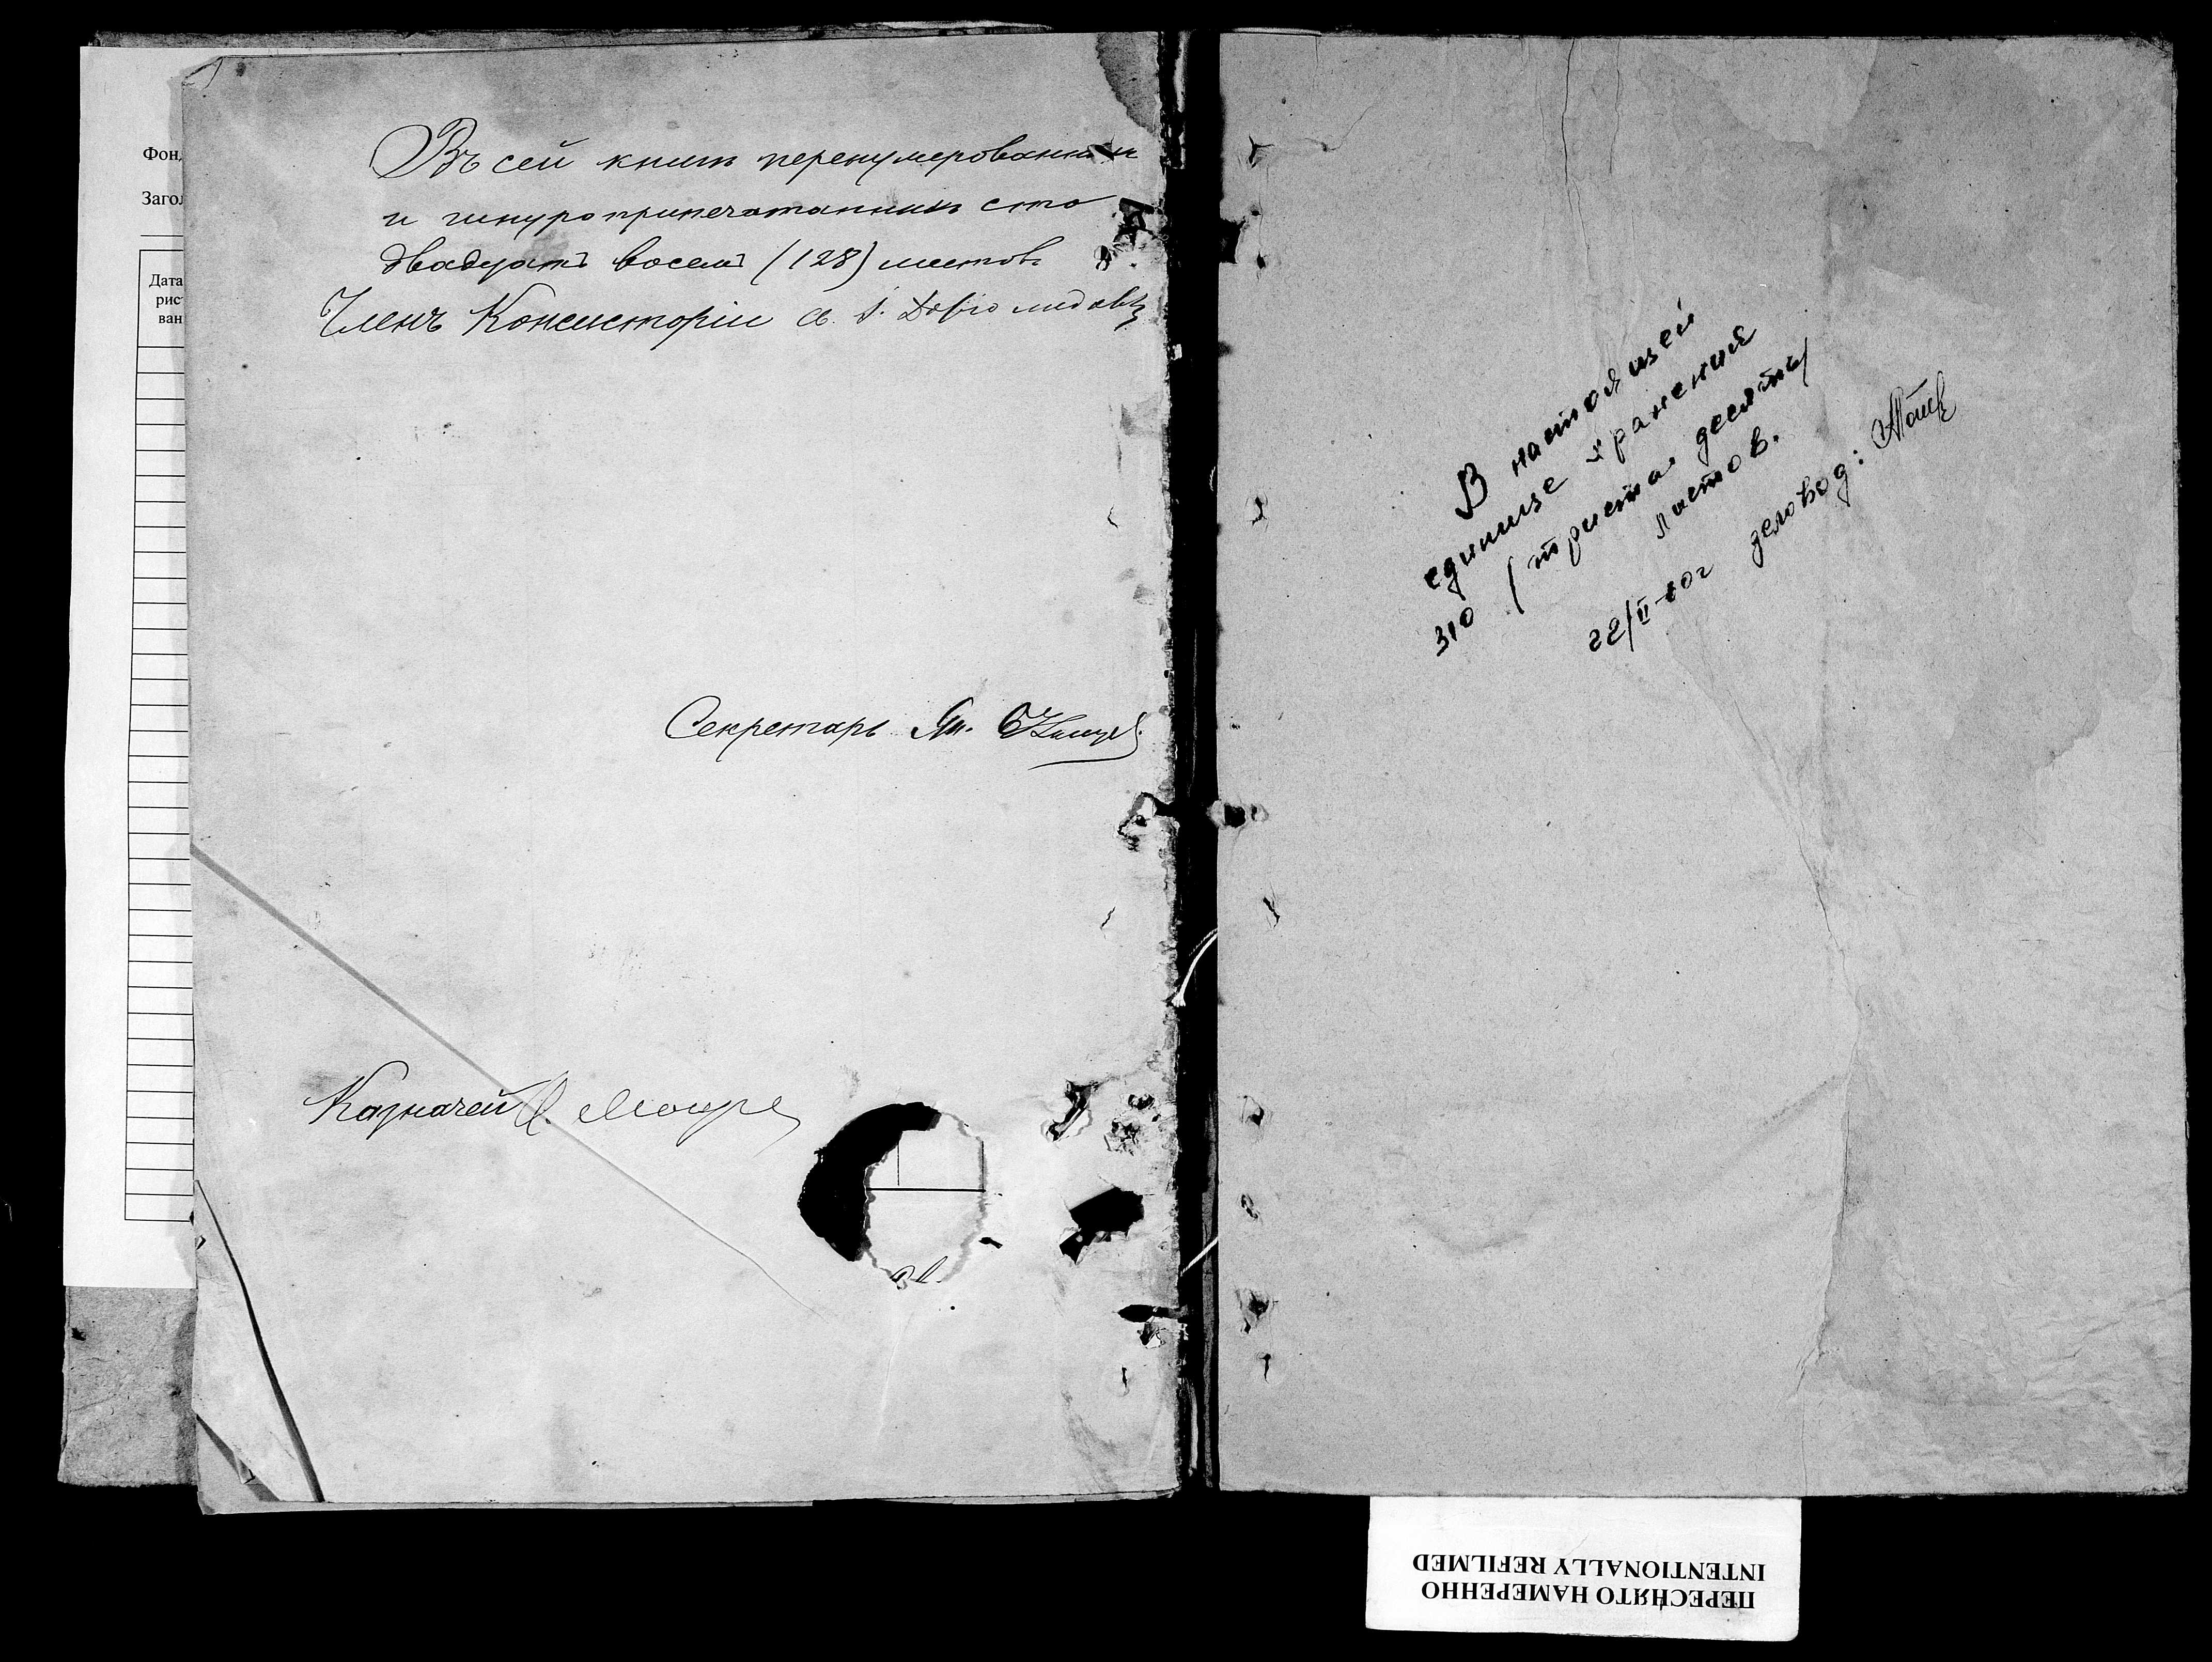 Фон
Заго
Дата
рис
ван
Въ сей книгѣ перенумерованныхъ
и шнуроприпечатанныхъ сто
двадцать восемь (128) листовъ
Членъ Консисторіи
Секретарь
Казначей
В настоящей
единице хранения
310 (триста десять)
листов.
22/II-60г деловод:
ПЕРЕСНЯТО НАМЕРЕННО
INTENTIONALLY REFILMED